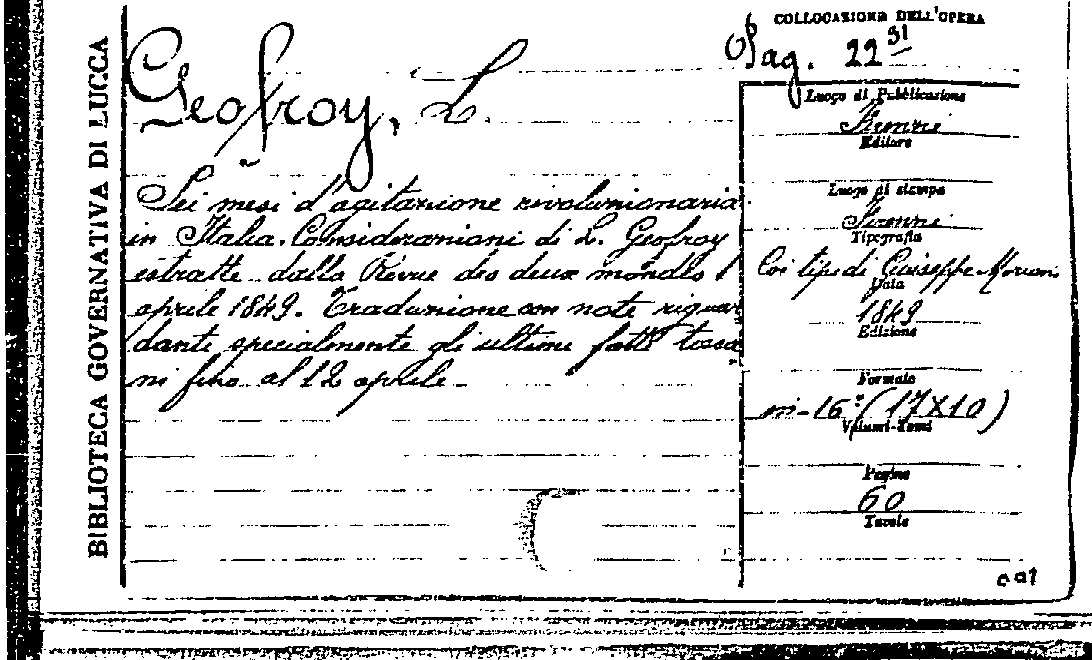 BIBLIOTECA GOVERNATIVA DI LUCCA
Geofroy, L.
Sei mesi d'agitazione rivoluzionaria
in Italia. Considerazioni di L. Geofroy
estratte dalla Revue des deux mondes 1
aprile 1849. Traduzione con note riguar
dante specialmente gli ultimi fatti tosca
ni fino al 12 aprile.
COLLOCAZIONE DELL'OPERA
Pag. 22 31
Luogo di Pubblicazione
Firenze
Editore
Luogo di stampa
Firenze
Tipografia
Coi tipi di Giuseppe Mariani
Data
1849
Edizione
Formato
in-16º (17X10)
Volumi-Tomi
Pagine
60
Tavole